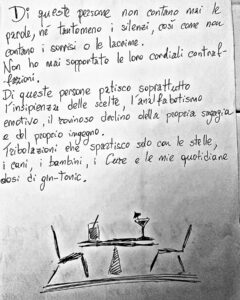 Di queste persone non contano mai le
parole, né tantomeno i silenzi, così come non
contano i sorrisi o le lacrime.
Non ho mai sopportato le loro cordiali contraf-
fazioni.
Di queste persone patisco soprattutto
l'insipienza delle scelte, l'analfabetismo
emotivo, il rovinoso declino della propria saggezza
e del proprio ingegno.
Tribolazioni che spartisco solo con le stelle,
i cani, i bambini, i Cure e le mie quotidiane
dosi di gin-tonic.